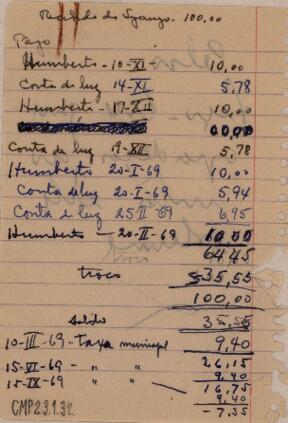 Recibido de Gyanzo - 100,00
Pago
Humberto - 10-XI- 10,00
Conta de luz 14-XI 5,78
Humberto - 17-XII 10,00
00,00
Conta de luz 19-XII 5,78
Humberto 20-I-69 10,00
Conta de luz 20-I-69 5,94
Conta de luz 25 II-69 6,95
Humberto - 20-II-69 10,00
64,45
troco 35,55
100,00
Saldo 35,55
10-III-69- taxa municipal 9,40
26,15
15-VI-69 - " " 9,40
15-IX-69 - " " 16,75
9,40
-7,35
CMP23.1.32